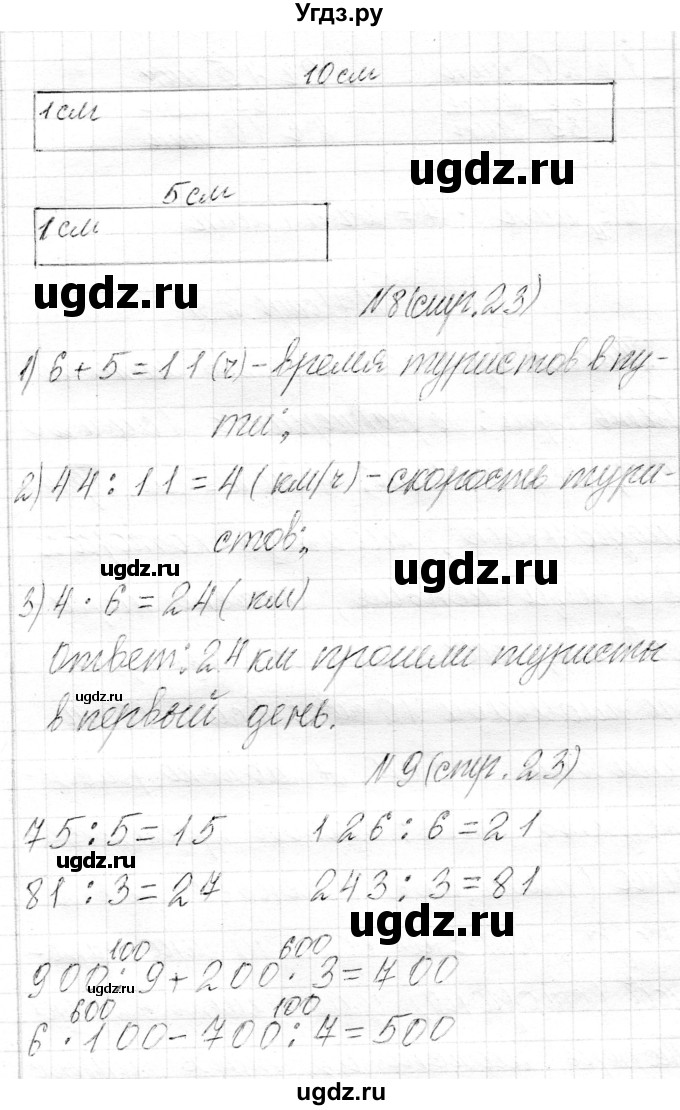 Угдз.ру
10 см
1 см
ugdz.ru
5 см
1 см
ugdz.ru
№8 (стр. 23)
1) 6 + 5 = 11 (ч) - время туристов в пу-
ти;
2) 44 : 11 = 4 (км/ч) - скорость тури-
стов;
ugdz.ru
ugdz.ru
3) 4 · 6 = 24 (км)
Ответ: 24 км прошли туристы
ugdz.ru
в первый день.
№9 (стр. 23)
75 : 5 = 15 126 : 6 = 21
ugdz.ru
81 : 3 = 27 243 : 3 = 81
ugdz.ru
100 600
900 : 9 + 200 · 3 = 700
ugdz.ru
600 100
6 · 100 - 700 : 7 = 500
ugdz.ru